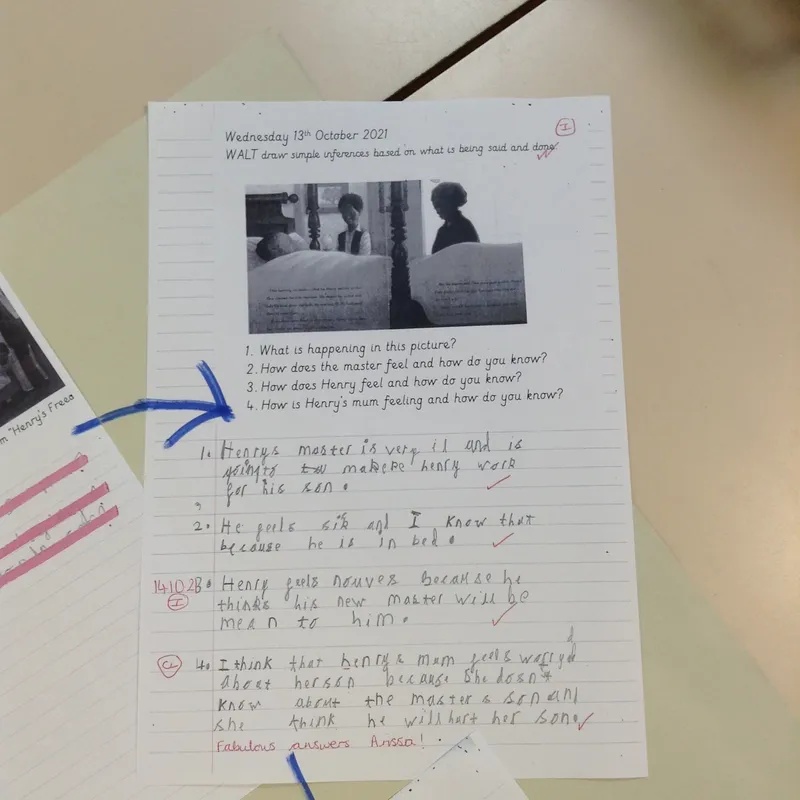 Wednesday 13th October 2021
I
WALT draw simple inferences based on what is being said and done.
1. What is happening in this picture?
2. How does the master feel and how do you know?
3. How does Henry feel and how do you know?
4. How is Henry's mum feeling and how do you know?
m "Henry's Freed
1. Henrys master is very il and is
going to makeke henry work
for his son.
2. He feels sik and I know that
because he is in bed.
14.10.21
I
3. Henry feels nouves because he
thinks his new master will be
mean to him.
4. I think that henrys mum feels
about her son because she dosn't
know about the masters son and
she think he will hurt her son.
Fabulous answers Arissa!